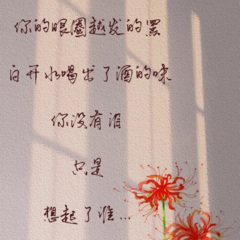 你的眼圈越发的黑
白开水喝出了酒的味
你没有泪
只是
想起了谁...